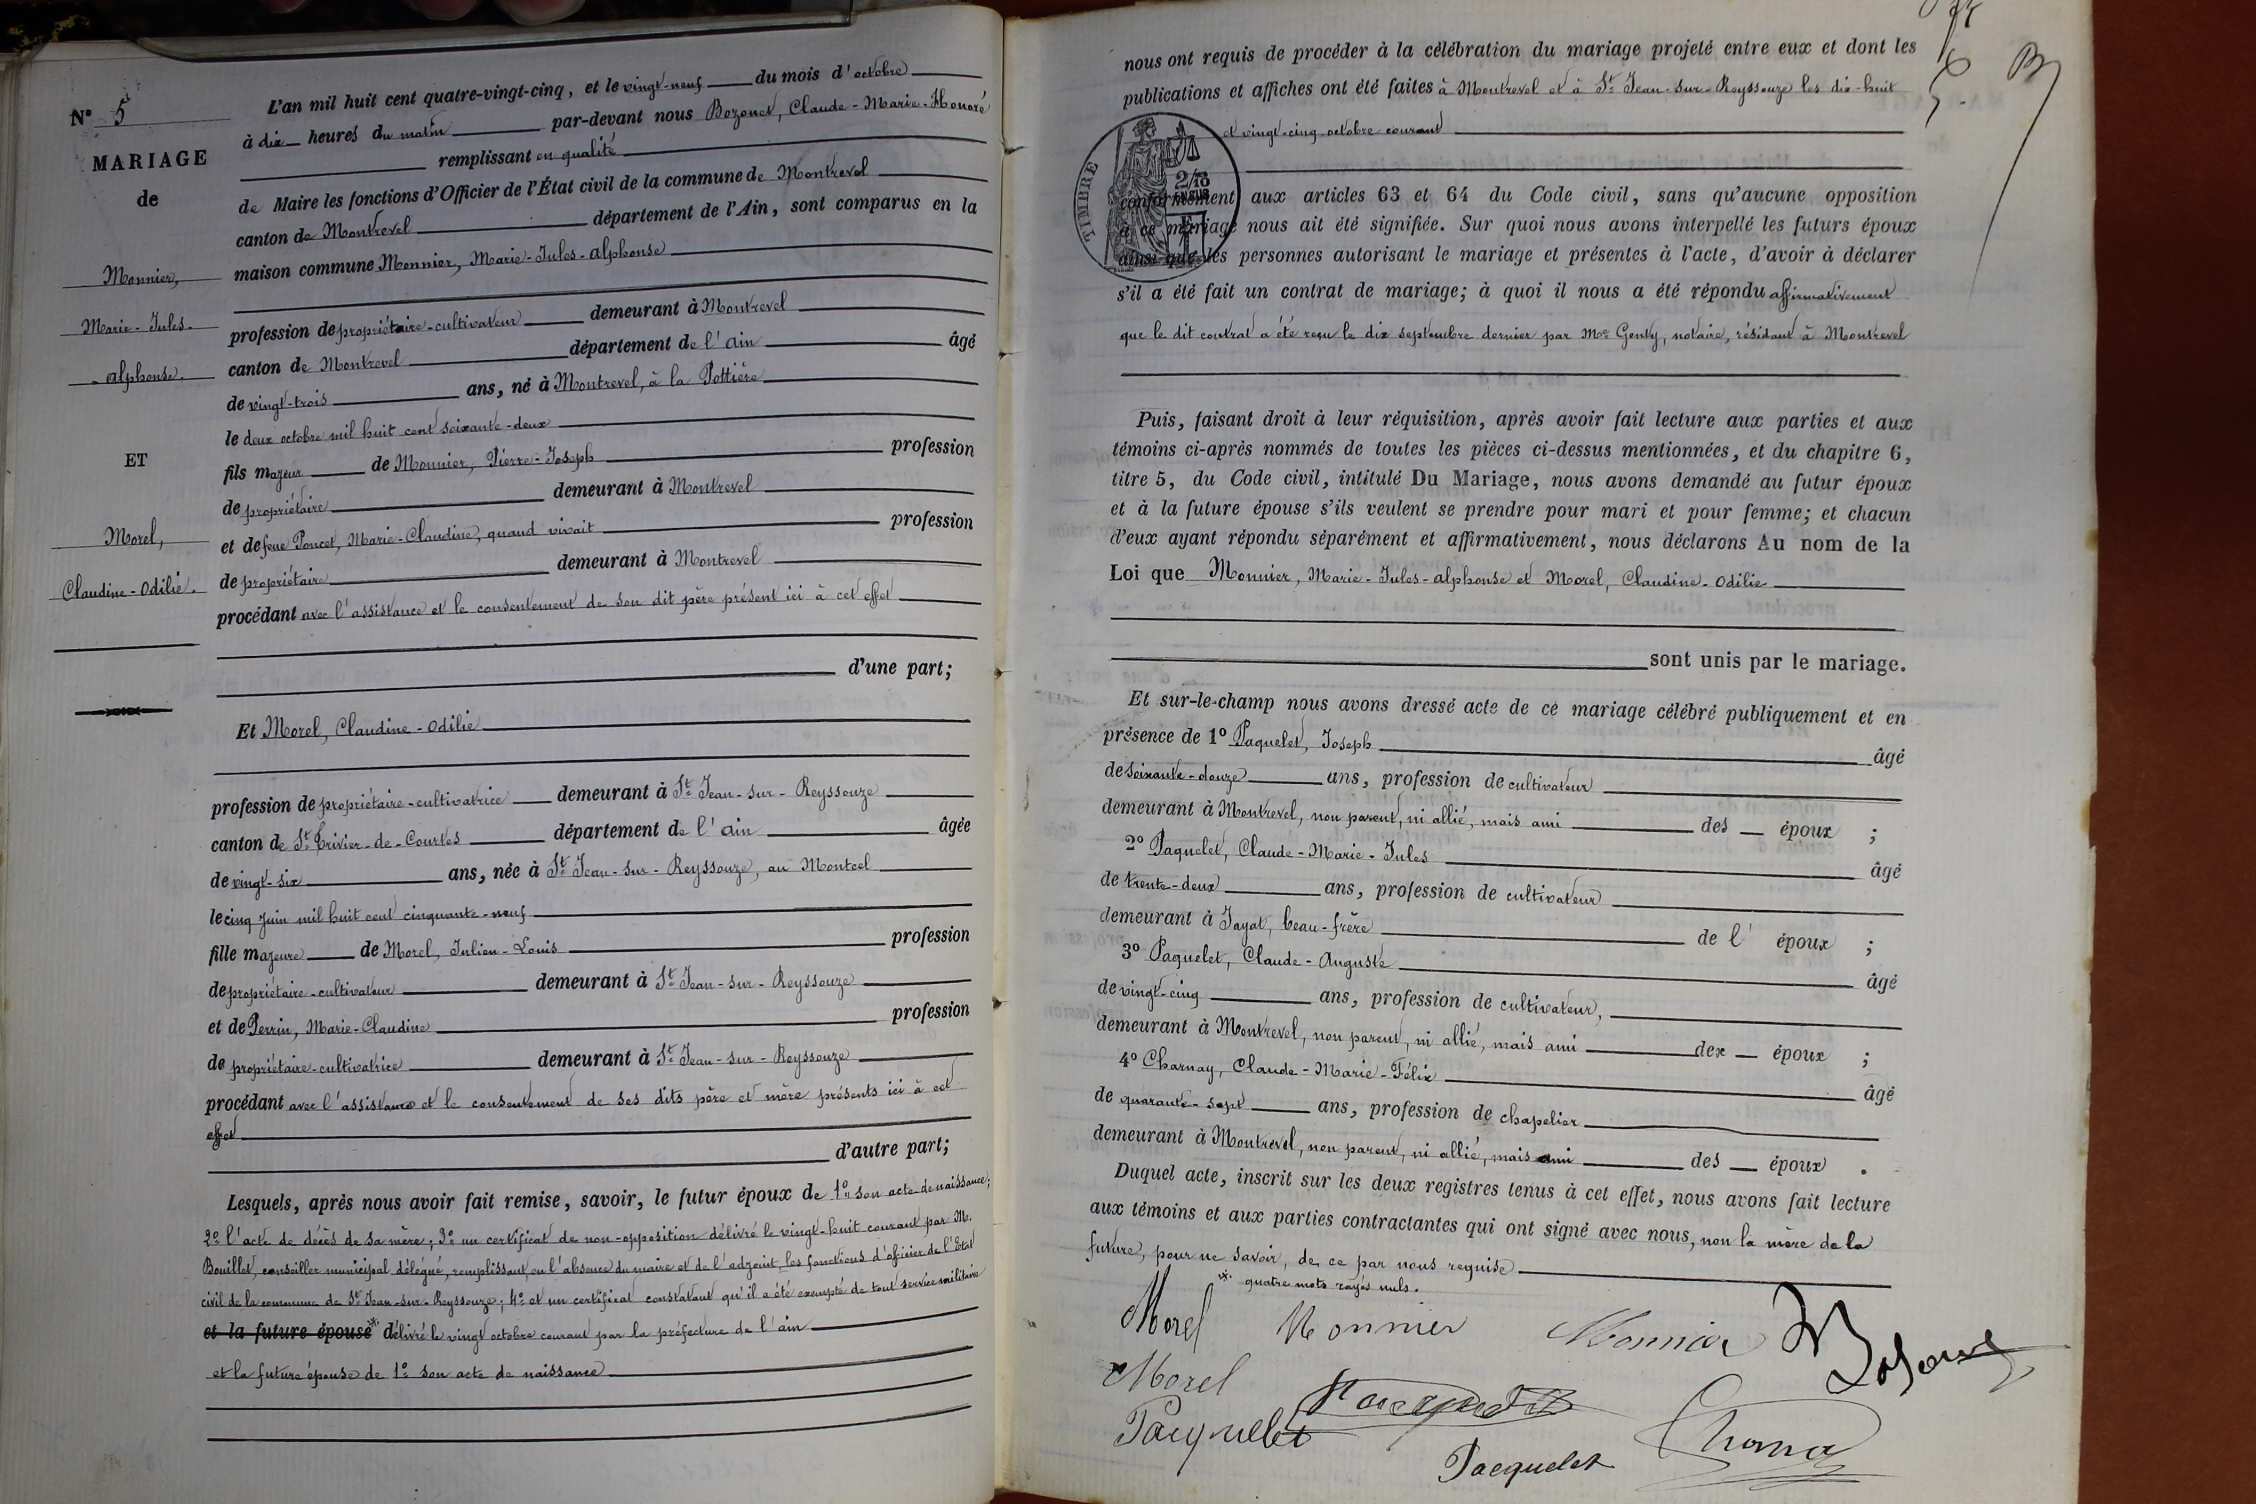 N° 5
MARIAGE
de
Monnier,
Marie-Jules-
-alphonse.
ET
Morel,
Claudine-Odilie.
L'an mil huit cent quatre-vingt-cinq, et le vingt-neuf du mois d'octobre
à dix heures du matin par-devant nous Bozonet, Claude-Marie-Honoré
remplissant en qualité
de Maire les fonctions d'Officier de l'État civil de la commune de Montrevel
canton de Montrevel département de l'Ain, sont comparus en la
maison commune Monnier, Marie-Jules-alphonse
profession de propriétaire-cultivateur demeurant à Montrevel
canton de Montrevel département de l'ain âgé
de vingt-trois ans, né à Montrevel, à la Pottière
le deux octobre mil huit cent soixante-deux
fils majeur de Monnier, Pierre-Joseph profession
de propriétaire demeurant à Montrevel
et de feue Poncet, Marie-Claudine, quand vivait profession
de propriétaire demeurant à Montrevel
procédant avec l'assistance et le consentement de son dit père présent ici à cet effet
d'une part;
Et Morel, Claudine-Odilie
profession de propriétaire-cultivatrice demeurant à St Jean-sur-Reyssouze
canton de St Trivier-de-Courtes département de l'ain âgée
de vingt-six ans, née à St Jean-sur-Reyssouze, au Montcel
le cinq juin mil huit cent cinquante-neuf
fille majeure de Morel, Julien-Louis profession
de propriétaire-cultivateur demeurant à St Jean-sur-Reyssouze
et de Perrin, Marie-Claudine profession
de propriétaire-cultivatrice demeurant à St Jean-sur-Reyssouze
procédant avec l'assistance et le consentement de ses dits père et mère présents ici à cet
effet
d'autre part;
Lesquels, après nous avoir fait remise, savoir, le futur époux de 1° son acte de naissance;
2° l'acte de décès de sa mère; 3° un certificat de non-opposition délivré le vingt-huit courant par M.
Bouillet, conseiller municipal délégué, remplissant, en l'absence du maire et de l'adjoint, les fonctions d'officier de l'Etat
civil de la commune de St Jean-sur-Reyssouze; 4° et un certificat constatant qu'il a été exempté de tout service militaire
et la future épouse * délivré le vingt octobre courant par la préfecture de l'ain
et la future épouse de 1° son acte de naissance
nous ont requis de procéder à la célébration du mariage projeté entre eux et dont les
publications et affiches ont été faites à Montrevel et à St Jean-sur-Reyssouze les dix-huit
et vingt-cinq octobre courant
TIMBRE
conformément aux articles 63 et 64 du Code civil, sans qu'aucune opposition
à ce mariage nous ait été signifiée. Sur quoi nous avons interpellé les futurs époux
ainsi que les personnes autorisant le mariage et présentes à l'acte, d'avoir à déclarer
s'il a été fait un contrat de mariage; à quoi il nous a été répondu affirmativement
que le dit contrat a été reçu le dix septembre dernier par Me Genty, notaire, résidant à Montrevel
Puis, faisant droit à leur réquisition, après avoir fait lecture aux parties et aux
témoins ci-après nommés de toutes les pièces ci-dessus mentionnées, et du chapitre 6,
titre 5, du Code civil, intitulé Du Mariage, nous avons demandé au futur époux
et à la future épouse s'ils veulent se prendre pour mari et pour femme; et chacun
d'eux ayant répondu séparément et affirmativement, nous déclarons Au nom de la
Loi que Monnier, Marie-Jules-alphonse et Morel, Claudine-Odilie
sont unis par le mariage.
Et sur-le-champ nous avons dressé acte de ce mariage célébré publiquement et en
présence de 1° Paquelet, Joseph âgé
de soixante-douze ans, profession de cultivateur
demeurant à Montrevel, non parent, ni allié, mais ami des époux ;
2° Paquelet, Claude-Marie-Jules âgé
de trente-deux ans, profession de cultivateur
demeurant à Jayat, beau-frère de l'époux ;
3° Paquelet, Claude-Auguste âgé
de vingt-cinq ans, profession de cultivateur,
demeurant à Montrevel, non parent, ni allié, mais ami des époux ;
4° Charnay, Claude-Marie-Félix âgé
de quarante-sept ans, profession de chapelier
demeurant à Montrevel, non parent, ni allié, mais ami des époux .
Duquel acte, inscrit sur les deux registres tenus à cet effet, nous avons fait lecture
aux témoins et aux parties contractantes qui ont signé avec nous, non la mère de la
future, pour ne savoir, de ce par nous requise
* quatre mots rayés nuls.
Morel Monnier Monnier
Morel
Pacquelet
Pacquelet